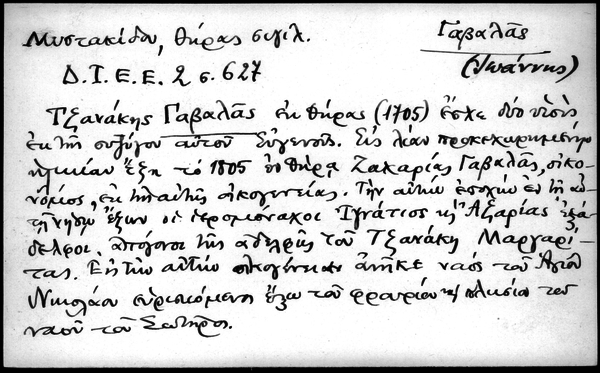 Μυστακίδου, Θήρας σιγιλ. Γαβαλᾶς
Δ.Ι.Ε.Ε. 2 σ. 627 (Ἰωάννης)
Τζανάκης Γαβαλᾶς ἐκ Θήρας (1705) ἔσχε δύο υἱοὺς
ἐκ τῆς συζύγου αὐτοῦ Εὐγενοῦς. Εἰς λίαν προκεχωρημένην
ἡλικίαν ἔζη τὸ 1805 ἐν Θήρᾳ Ζακαρίας Γαβαλᾶς, οἰκο-
νόμος, ἐκ τῆς αὐτῆς οἰκογενείας. Τὴν αὐτὴν ἐποχὴν ἐν τῇ αὐ-
τῇ νήσῳ ἔζων οἱ ἱερομόναχοι Ἰγνάτιος κ Ἀζαρίας ἐξά-
δελφοι, ἀπόγονοι τῆς ἀδελφῆς τοῦ Τζανάκη Μαργαρί-
τας. Εἰς τὴν αὐτὴν οἰκογένειαν ἀνῆκε ναὸς τοῦ Ἁγίου
Νικολάου εὑρισκόμενος ἔξω τοῦ φρουρίου κ πλησίον τοῦ
ναοῦ τοῦ Σωτῆρος.